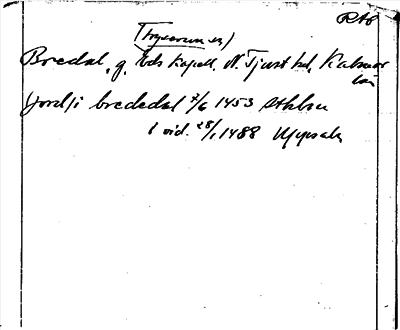 RAB
Bredal, g. Eds kapell, N. Tjust hd, Kalmar
län
brededal 7/6 1453 Sthlm
i vid. 28/1 1488 Uppsala